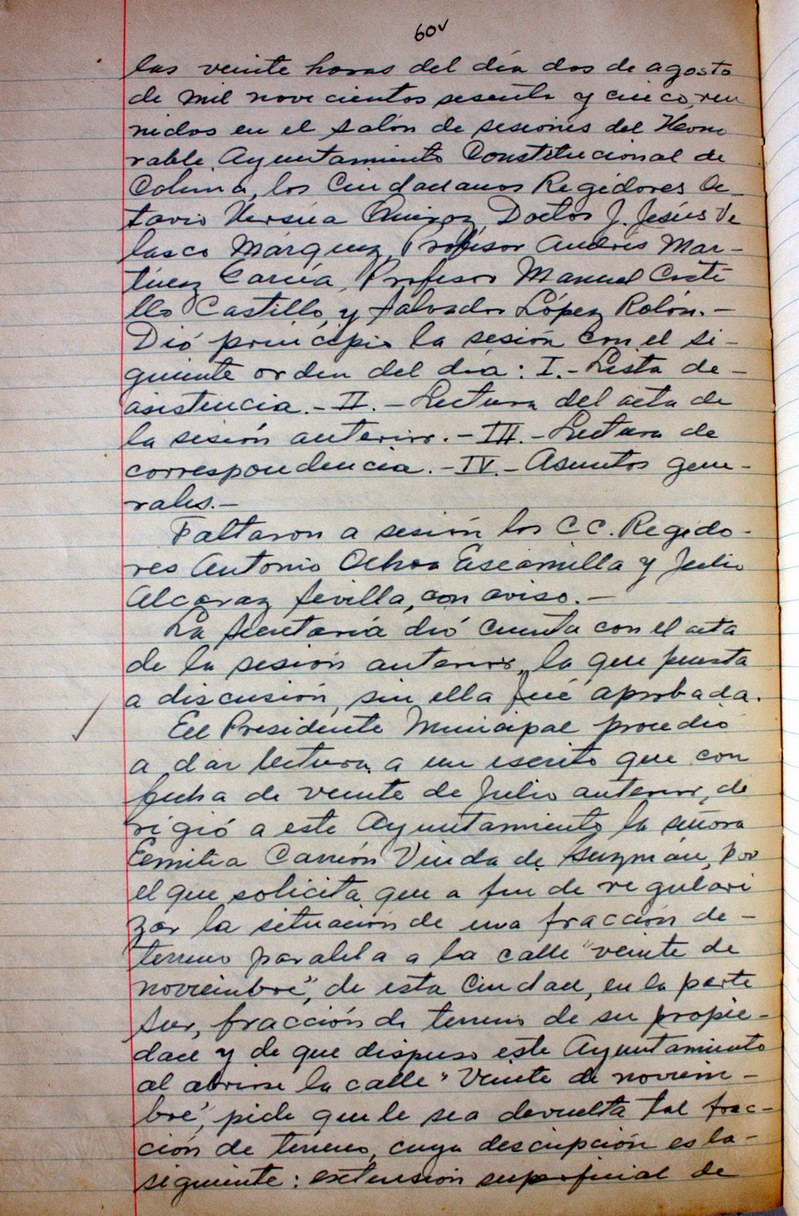 60v
las veinte horas del día dos de agosto
de mil novecientos sesenta y cinco, reu
nidos en el salón de sesiones del Hono
rable Ayuntamiento Constitucional de
Colima, los Ciudadanos Regidores Oc-
tavio Ursúa Quiroz, Doctor J. Jesús Ve
lasco Márquez, Profesor Andrés Mar-
tínez García, Profesor Manuel Coste
llo Castillo, y Salvador López Rolón.-
Dió principio la sesión con el si-
guiente orden del día: I.- Lista de-
asistencia.- II.- Lectura del acta de
la sesión anterior.- III.- Lectura de
correspondencia.- IV.- Asuntos gene-
rales.-
Faltaron a sesión los CC. Regido-
res Antonio Ochoa Escamilla y Julio
Alcaraz Sevilla, con aviso.-
La Secretaría dió cuenta con el acta
de la sesión anterior, la que puesta
a discusión, sin ella fué aprobada.
El Presidente Municipal procedió
a dar lectura a un escrito que con
fecha de veinte de Julio anterior, di
rigió a este Ayuntamiento la señora
Emilia Carrión Viuda de Guzmán, por
el que solicita que a fin de regulari
zar la situación de una fracción de-
terreno paralela a la calle "veinte de
noviembre", de esta Ciudad, en la parte
Sur, fracción de terreno de su propie-
dad y de que dispuso este Ayuntamiento
al abrirse la calle "Veinte de noviem-
bre", pide que le sea devuelta tal frac-
ción de terreno, cuya descripción es la-
siguiente: extensión superficial de